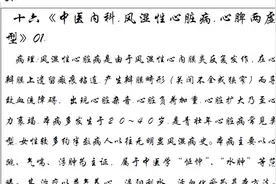 十六《中医内科.风湿性心脏病.心脾两虚
型》01.
病理:风湿性心脏病是由于风湿性心内膜炎反复发作,在心
瓣膜上遗留瘢痕粘连,产生瓣膜畸形(关闭不全或狭窄)而导
致血流障碍,出现心脏杂音,心脏负荷加重,心脏扩大乃至心
力衰竭。本病多发生于20~40岁,是青壮年心脏病常见类
型,女性较多约半数病人以往无明显风湿病史。本病主要以心
跳,气喘,浮肿为主证,属于中医学"怔忡","水肿"等范